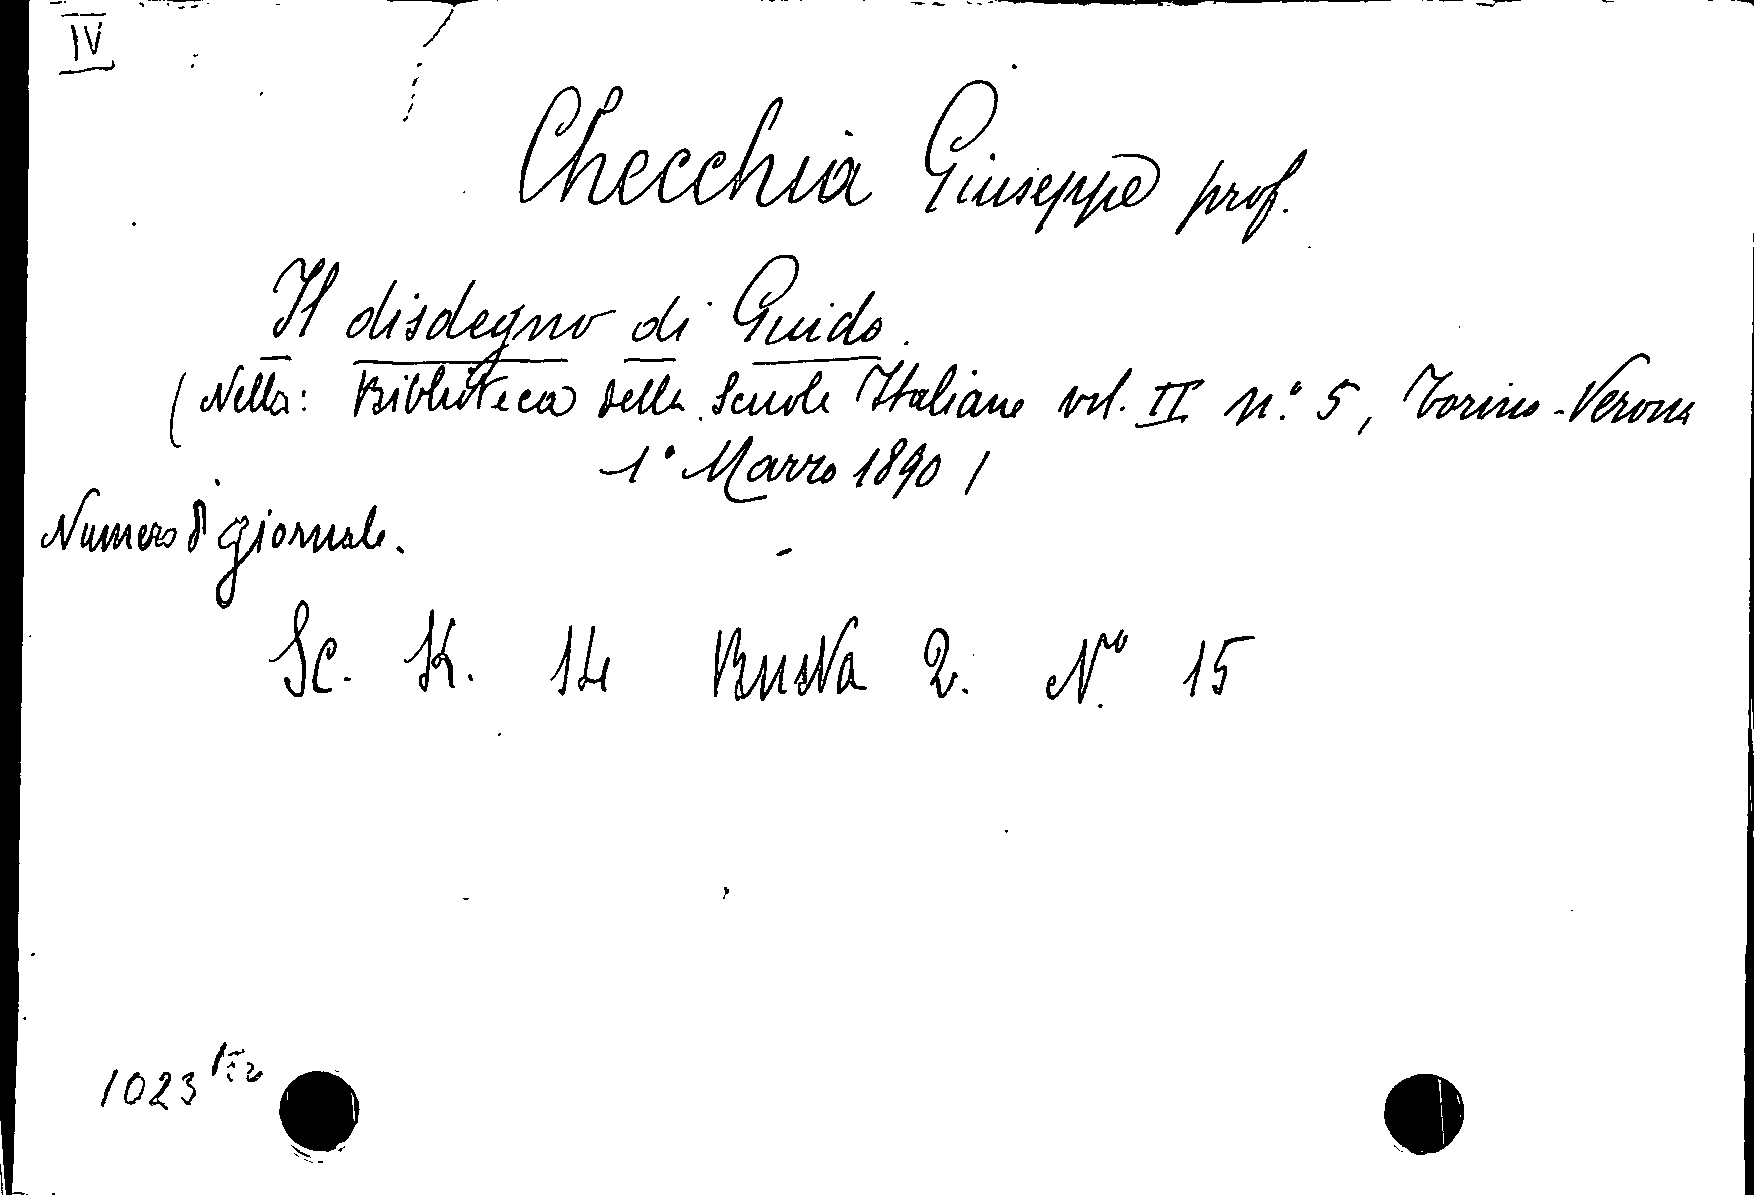 IV
Checchia Giuseppe prof.
Il disdegno di Guido.
(Nella: Biblioteca delle Scuole Italiane vol. II n.° 5, Torino-Verona
1° Marzo 1890)
Numero di giornale.
Sc. K. 14 Busta 2. N.° 15
1023